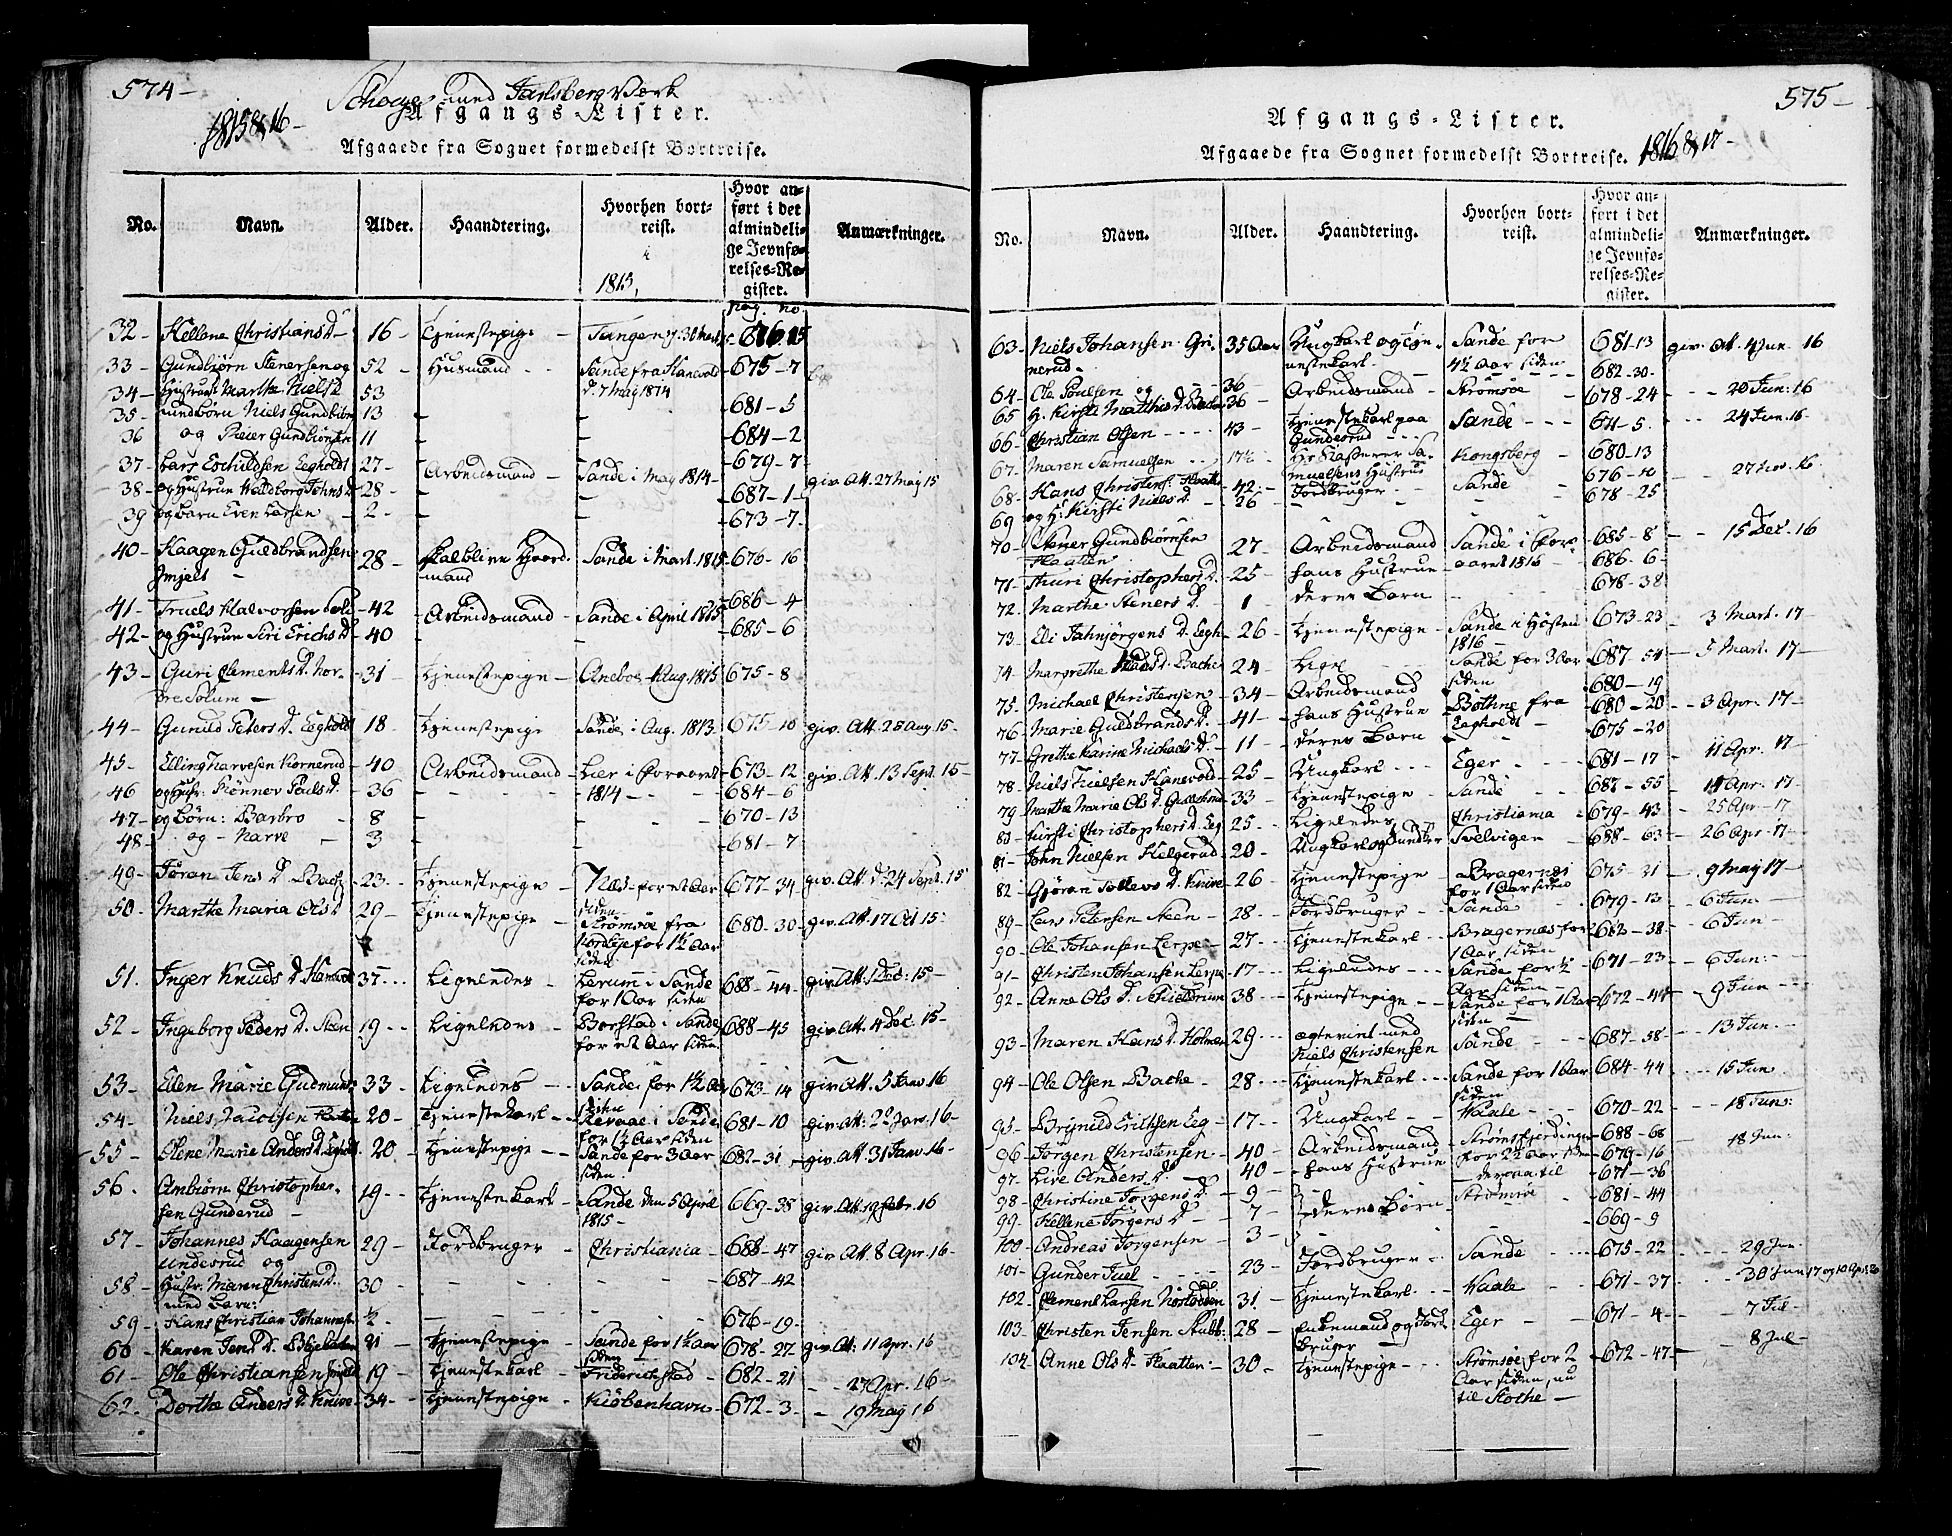 574-
Schoger med Jarlsberg Værk
1815 & 16-
Afgangs-Lister.
Afgaaede fra Sognet formedelst Bortreise.
No. Navn. Alder. Haandtering. Hvorhen bortreist. Hvor anført i det almindelige Jevnførelses-Register. Anmærkninger.
1815,
pag. no
32- Hellene Christians D- 16- Tjenestepige - Tangen 30 676-15
33- Gundbjørn Stenersen og 52- Husmand - Sande fra Hanevold 675-7
34- Hustrue Marthe Niels D 53 d. 7 May 1814
35- Niels Gundbiørn 13 - - 681-5
36 og Peier Gundbiørnsen 11 - - 684-2
37- Lars Eschildsen Eegholdt 27- Arbeidsmand - Sande i May 1814- 679-7 giv. Att. 27 May 15
38- og Hustrue Waldborg Johns D 28- - - 687-1
39 og Barn Even Larsen - 2- - - 673-7
40- Haagen Guldbrandsen 28- Sande i Mart. 1815 676-16
41- Truels Halvorsen 42 Arbeidsmand - Sande i April 1815 686-4
42- og Hustrue Siri Erichs D- 40 - - 685-6
43- Guri Clements D. Nordre Solum - 31 Tjenestepige - Aneboe Aug. 1815 675-8
44- Gunild Peters D. Eegholdt 18- Tjenestepige Sande i Aug. 1813 675-10 giv. Att. 28 Aug 15-
45- Elling Narvesen Kornerud 40 Arbeidsmand - Lier i Foraaret 673-12 giv. Att. 13 Sept. 15-
46 og Hustr: Rønner Pouls D. - 36 1814 - 684-6
47- og Børn: Barbro - 8 670-13
48- og - Narve - 3 681-7
49- Jøran Jens D. Bache 23- Tjenestepige - Næs for et Aar siden 677-34 giv. Att. d. 24 Sept. 15
50- Marthe Maria Ols D 29- Tjenestepige - Strømsøe fra for 1½ Aar siden 680-30 giv. Att. 17 Oct 15-
51. Inger Knuds D. Hanevold 37- Ligeledes - Lerum i Sande for 1 Aar siden 688-44 giv. Att. 1 Dec. 15-
52- Ingeborg Peders D. Steen 19- Ligeledes - Borstad i Sande for et Aar siden 688-45 giv. Att. 4 Dec. 15-
53- Ellen Marie Gudmunds 33- Ligeledes - Sande for 1½ Aar siden 673-14 giv. Att. 5 Janv 16
54- Niels Jacobsen 20- Tjenestekarl - Revaae i Sande for 1½ Aar siden 681-10 giv. Att. 22 Janv. 16-
55- Olene Marie Anders D. 20- Tjenestepige - Sande for 3 Aar siden 682-31 giv. Att. 31 Janv 16-
56. Anbiørn Christophersen Gunderud - 19- Tjenestekarl - Sande den 5 April 1815- 669-38 giv. Att. 19 Febr. 16
57- Johannes Haagensen Undesrud og 29- Jordbruger - Christiania - 688-47 giv. Att. 8 Apr. 16-
58- Hustr. Maren Christens D. med Barn: 30 - - 687-42
59- Hans Christian Johannesen ½ - - 676-19
60- Karen Jens D. 21 Tjenestepige - Sande for 1½ Aar siden 678-27 giv. Att. 11 Apr. 16
61- Ole Christiansen 19- Tjenestekarl - Friderichstad - 682-21 - 27 Apr. 16-
62. Dorthe Anders D. Knive - 34- Tjenestepige - Kiøbenhavn - 672-3 - 19 May 16
575-
Afgangs-Lister.
Afgaaede fra Sognet formedelst Bortreise. 1816 & 17-
No. Navn. Alder. Haandtering. Hvorhen bortreist. Hvor anført i det almindelige Jevnførelses-Register. Anmærkninger.
63- Niels Johansen Grimerud - 35 Aar Ungkarl og Tjenestekarl - Sande for 4½ Aar siden 681-13 giv. Att. 4 Jun. 16
64- Ole Poulsen og - 36- Arbeidsmand - Strømsøe - 682-30 - 20 Jun. 16
65 H. Kirsti Matthis D. Bache 36- 678-24
66- Christian Olsen - 43- Tjenestekarl paa Gunderud - Sande - 671-5. - 24 Jun. 16-
67- Maren Samuelsen - 17½ Hr. Kasserer Samuelsens Hustrue Kongsberg - 680-13
68- Hans Christens. 42- Jordbruger - Sande 676-10 - 27 Nov. 16
69 og H: Kirsti Niels D - 26 - 678-25
70- Stener Gundbiørnsen Flaaten 27- Arbeidsmand Sande i Foraaret 1816 - 685-8 - 15 Dec. 16
71- Thuri Christophers D. 25- hans Hustrue 686-6
72- Marthe Steners D. - 1 deres Barn - 678-38
73- Eli Jahnjørgens D. Eegh 26- Tjenestepige - Sande i Høsten 1816- 673-23 - 3 Mart. 17-
74- Margrethe D. Bache 24- Lige - Sande for 3 Aar siden 687-54 - 5 Mart. 17-
75- Michael Christensen - 34- Arbeidsmand Bothne fra Eegholdt - 680-19 - 3 Apr. 17-
76- Marie Guldbrands D. 41- hans Hustrue 680-20
77- Grethe Karine Michaels D. - 11- deres Barn 675-20
78- Niels Nielsen Hanevold - 25- Ungkarl - Eger - 681-17 - 11 Apr. 17
79- Marthe Marie Ols D. 33- Tjenestepige - Sande - 687-55 - 14 Apr. 17-
80- Kirsti Christophers D. Eeg 25- Ligeledes - Christiania 679-43 - 25 Apr. 17-
81- John Nielsen Helgerud - 20- Ungkarl og Svelvigen - 688-63 - 26 Apr. 17-
82- Gjøran Tollevs D. Knive 26- Tjenestepige - Bragernæs for 1 Aar siden 675-31 - 9 May 17-
89- Lars Petersen Steen - 28- Jordbruger - Sande - 679-13 - 6 Jun -
90- Ole Johansen Lerpe - 27- Tjenestekarl - Bragernæs for 1 Aar siden 683-38 - 6 Jun -
91- Christen Johansen Lerpe 17- Ligeledes - Sande for ½ Aar siden - 671-23 - 6 Jun: -
92- Anne Ols D. Schieldrum 38- Tjenestepige - Sande for 1 Aar siden - 672-44 - 9 Jun -
93- Maren Hans D. Holmen 29- ægteviet med Niels Christensen Sande - 687-58 - 13 Jun. -
94- Ole Olsen Bache - 28- Tjenestekarl - Sande for 1 Aar siden 684-44 - 15 Jun
95- Brynild Erichsen Eeg - 17- Ungkarl - Waale - 670-22 - 18 Jun:
96- Jørgen Christensen - 40- Arbeidsmand - Strømsfjerdingen for 2½ Aar siden 688-68 - 18 Jun:
97- Live Anders D. - 40- hans Hustrue - derpaa til 679-16
98- Christine Jørgens D. - 9- Strømsøe 671-36
99- Hellene Jørgens D - 7- deres Børn - 681-44
100- Andreas Jørgensen - 3- 669-9
101- Gunder Juel - 23- Jordbruger - Sande - 675-22 - 29 Jun
102- Clement Larsen 31- Tjenestekarl - Waale - 671-37 - 30 Jun 17 og 10 Apr: 20
103- Christen Jensen Stubb: 28- Enkemand og Jordbruger - Eger - 671-4- - 7 Jul -
104- Anne Ols D. Flaatten: - 30- Tjenestepige - Strømsøe for 2 Aar siden, nu til Skothe - 672-47- 8 Jul -